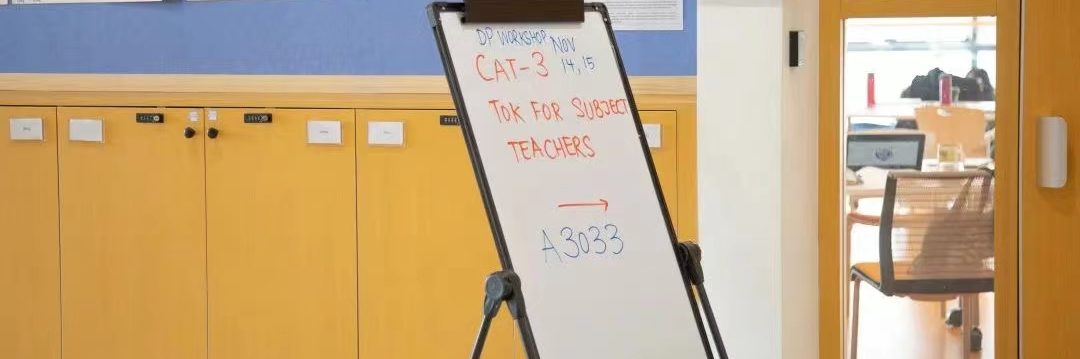 DP WORKSHOP NOV
CAT-3 14, 15
TOK FOR SUBJECT
TEACHERS
→
A3033